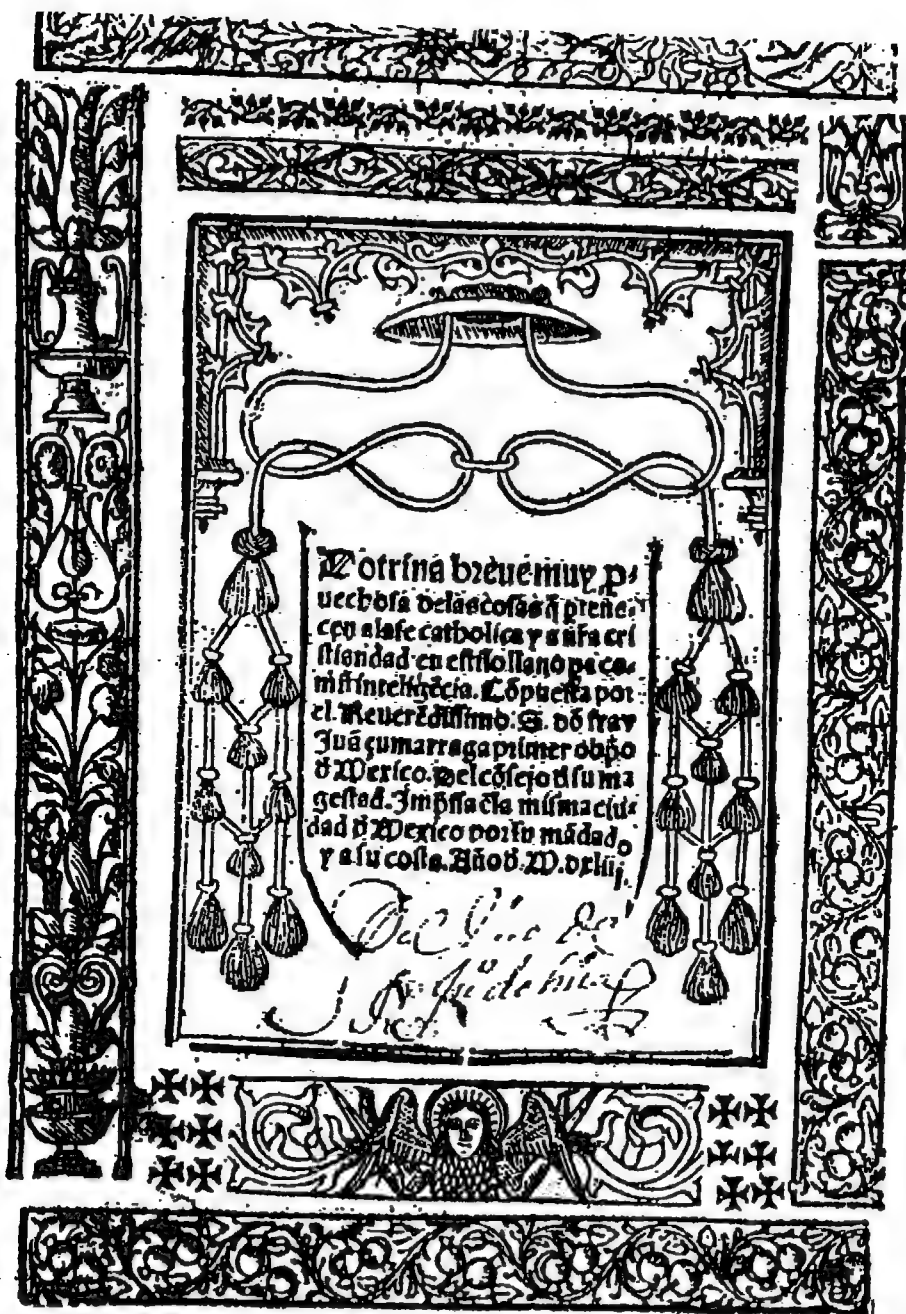 Dotrina breue muy ꝓ-
uechosa delas cosas q̃ ꝑtene-
cen a la fe catholica y a nr̃a cri
stiandad en estilo llano ꝑa co-
mũ intelig̃ecia. Cõpuesta por
el. Reuerẽdissimo. S. dõ fray
Juã çumarraga primer obp̃o
d̃ Mexico. Del cõsejo d̃ su ma
gestad. Imp̃ssa ẽ la misma ciu-
dad d̃ Mexico por su mãdado
y a su costa. Año d̃. M. dxliij.